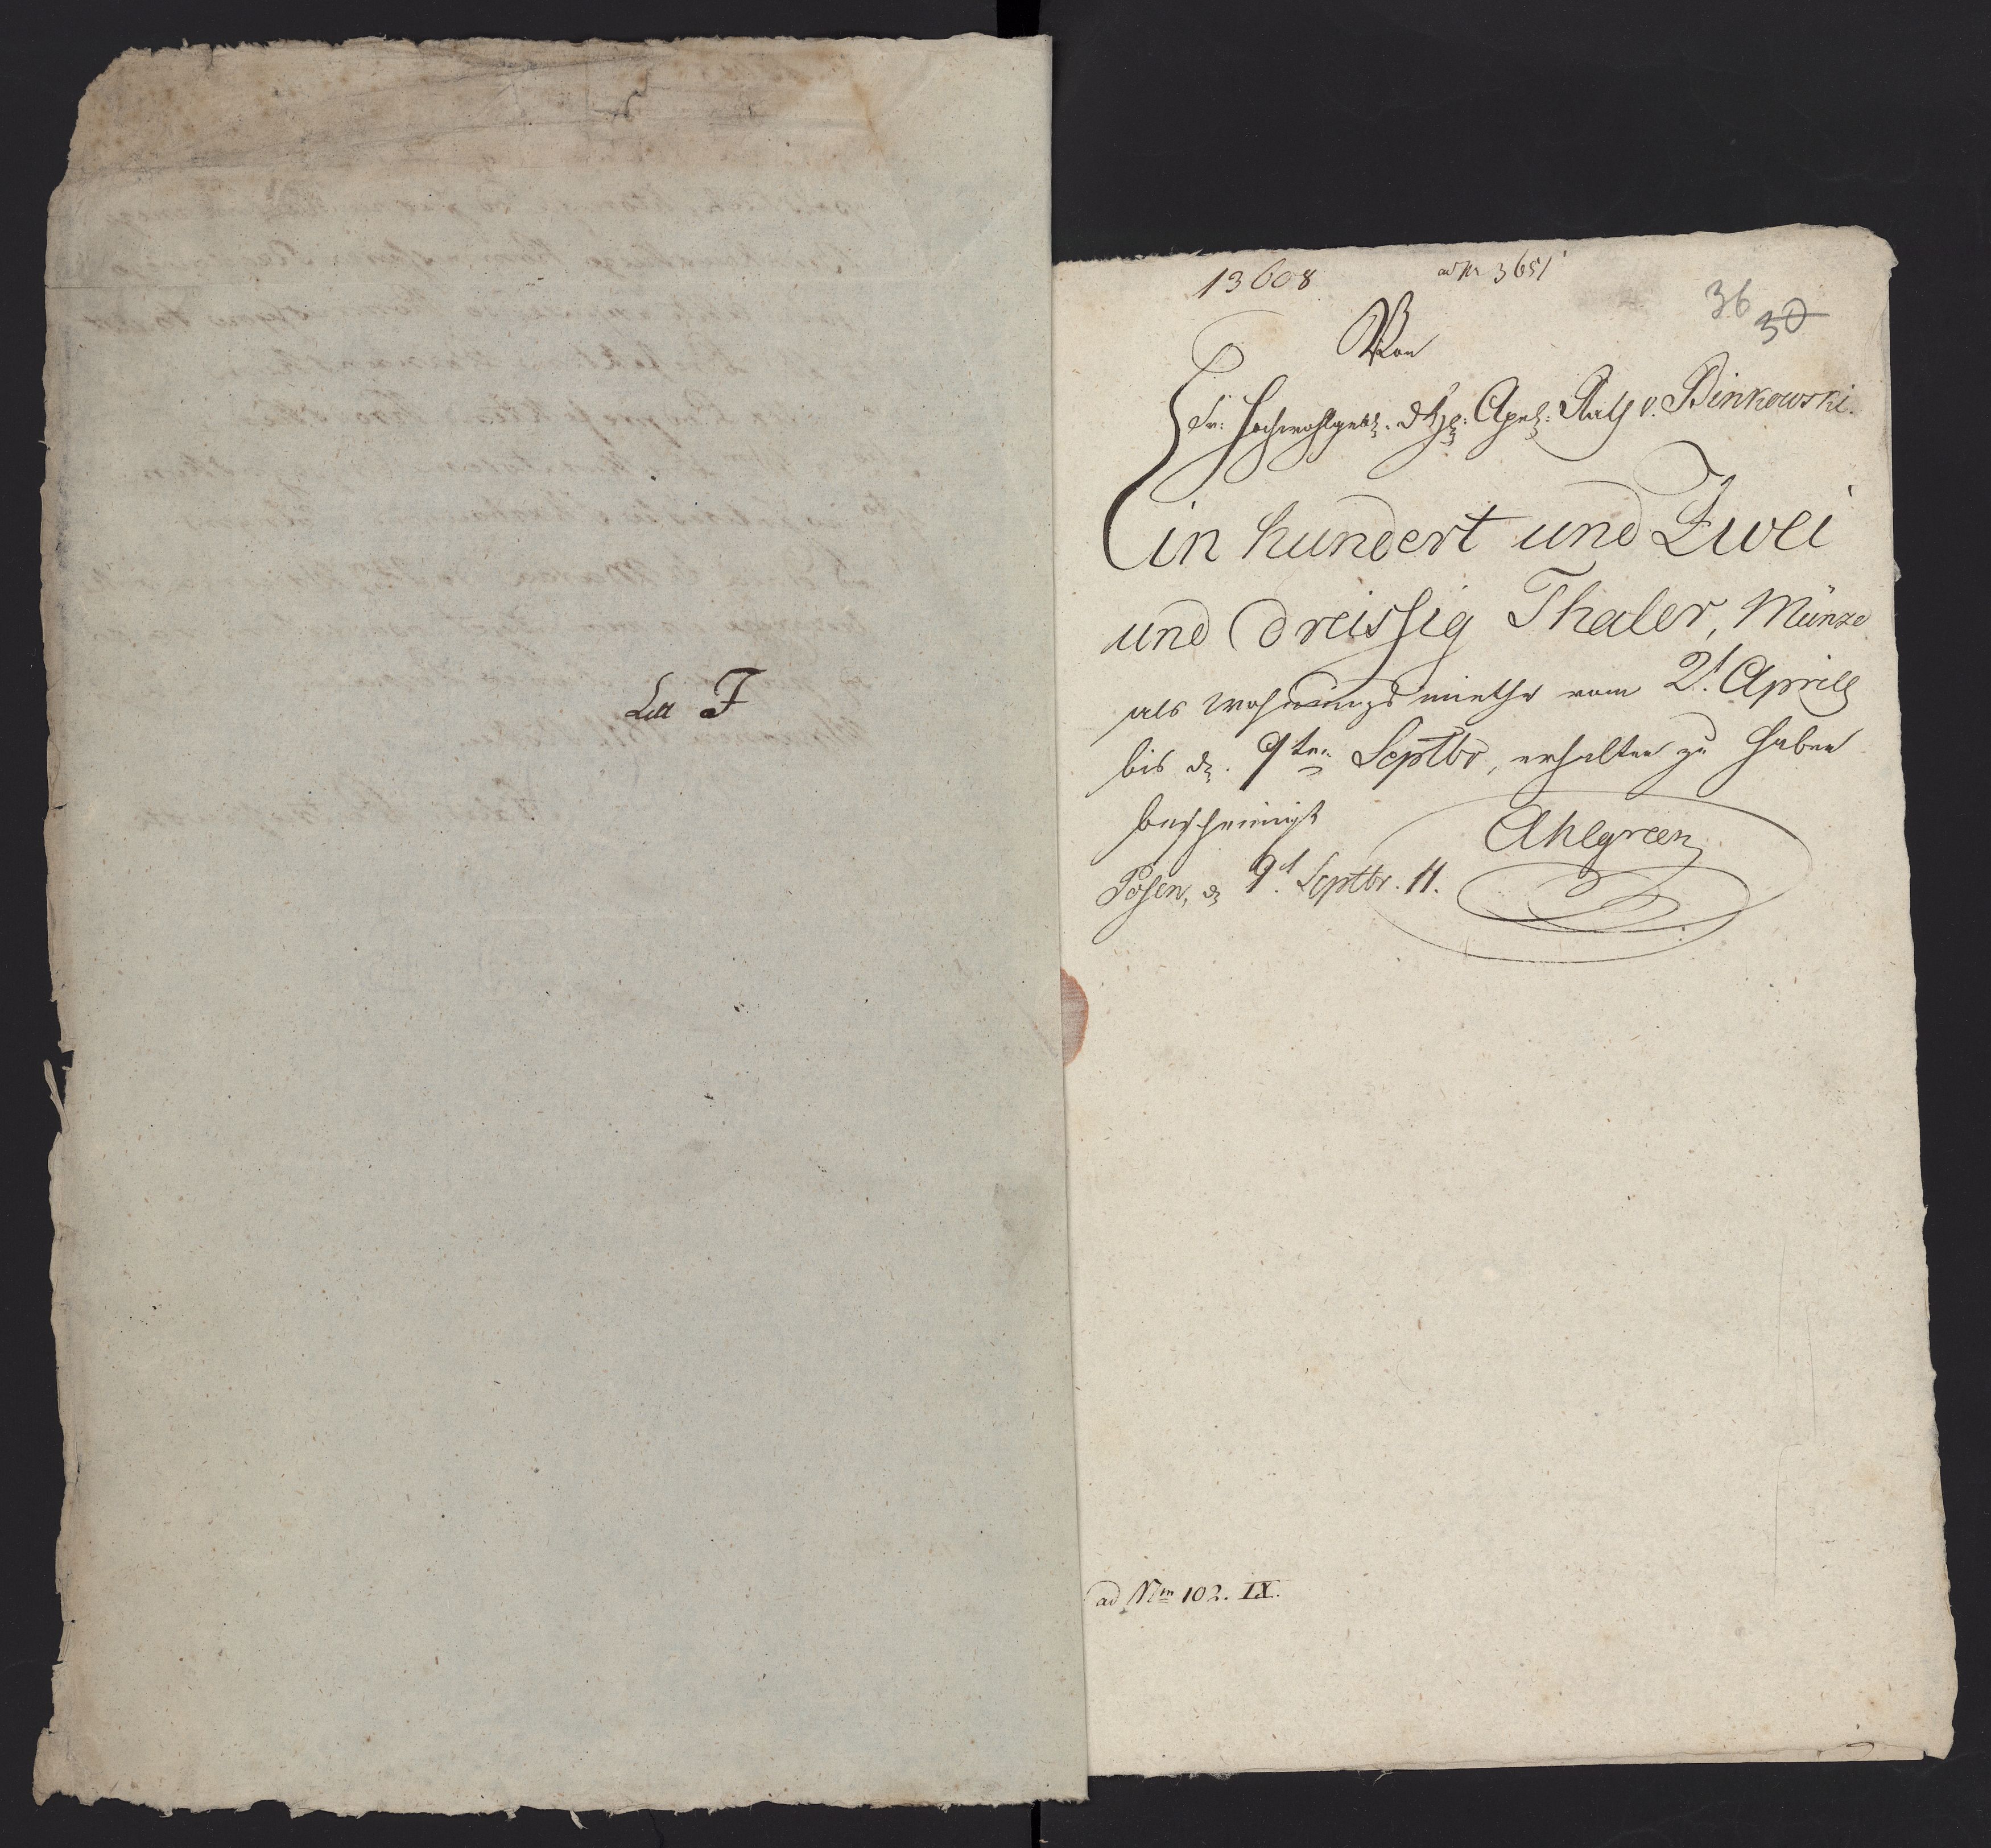 Litt J
13608
ad Nr 3651
36
30
Von
Sr: Hochwohlgeb: Apel: Rath v. Binkowski.
Ein hundert und Zwei
und dreissig Thaler, Münze
als Wohnungs miethe vom 2t Aprill
bis d. 9ten Septbr, erhalten zu haben
bescheinigt
Ahlgreen
Posen, d 9t Septbr. 11.
ad Nrm 102. IX.